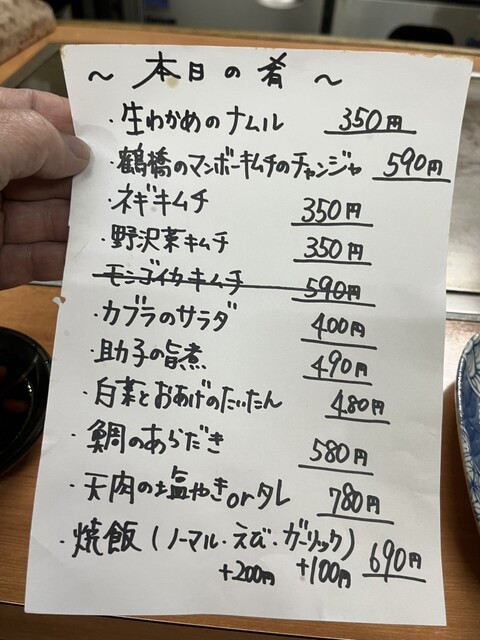 ～ 本日の肴 ～
・生わかめのナムル 350円
・鶴橋のマンボーキムチのチャンジャ 590円
・ネギキムチ 350円
・野沢菜キムチ 350円
モンゴイカキムチ 590円
・カブラのサラダ 400円
・助子の旨煮 490円
・白菜とおあげのたいたん 480円
・鯛のあらだき 580円
・天肉の塩やきorタレ 780円
・焼飯(ノーマル・えび・ガーリック) 690円
+200円 +100円